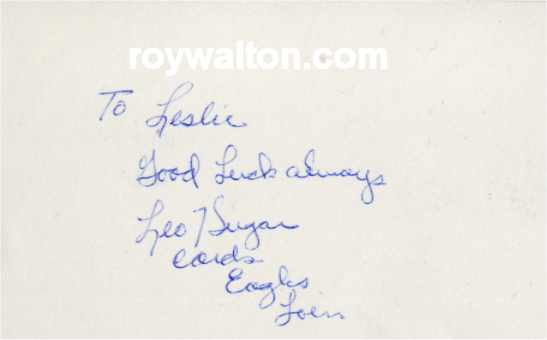 roywalton.com
To Leslie
Good Luck always
Leo T Sugar
Cards
Eagles
Lions